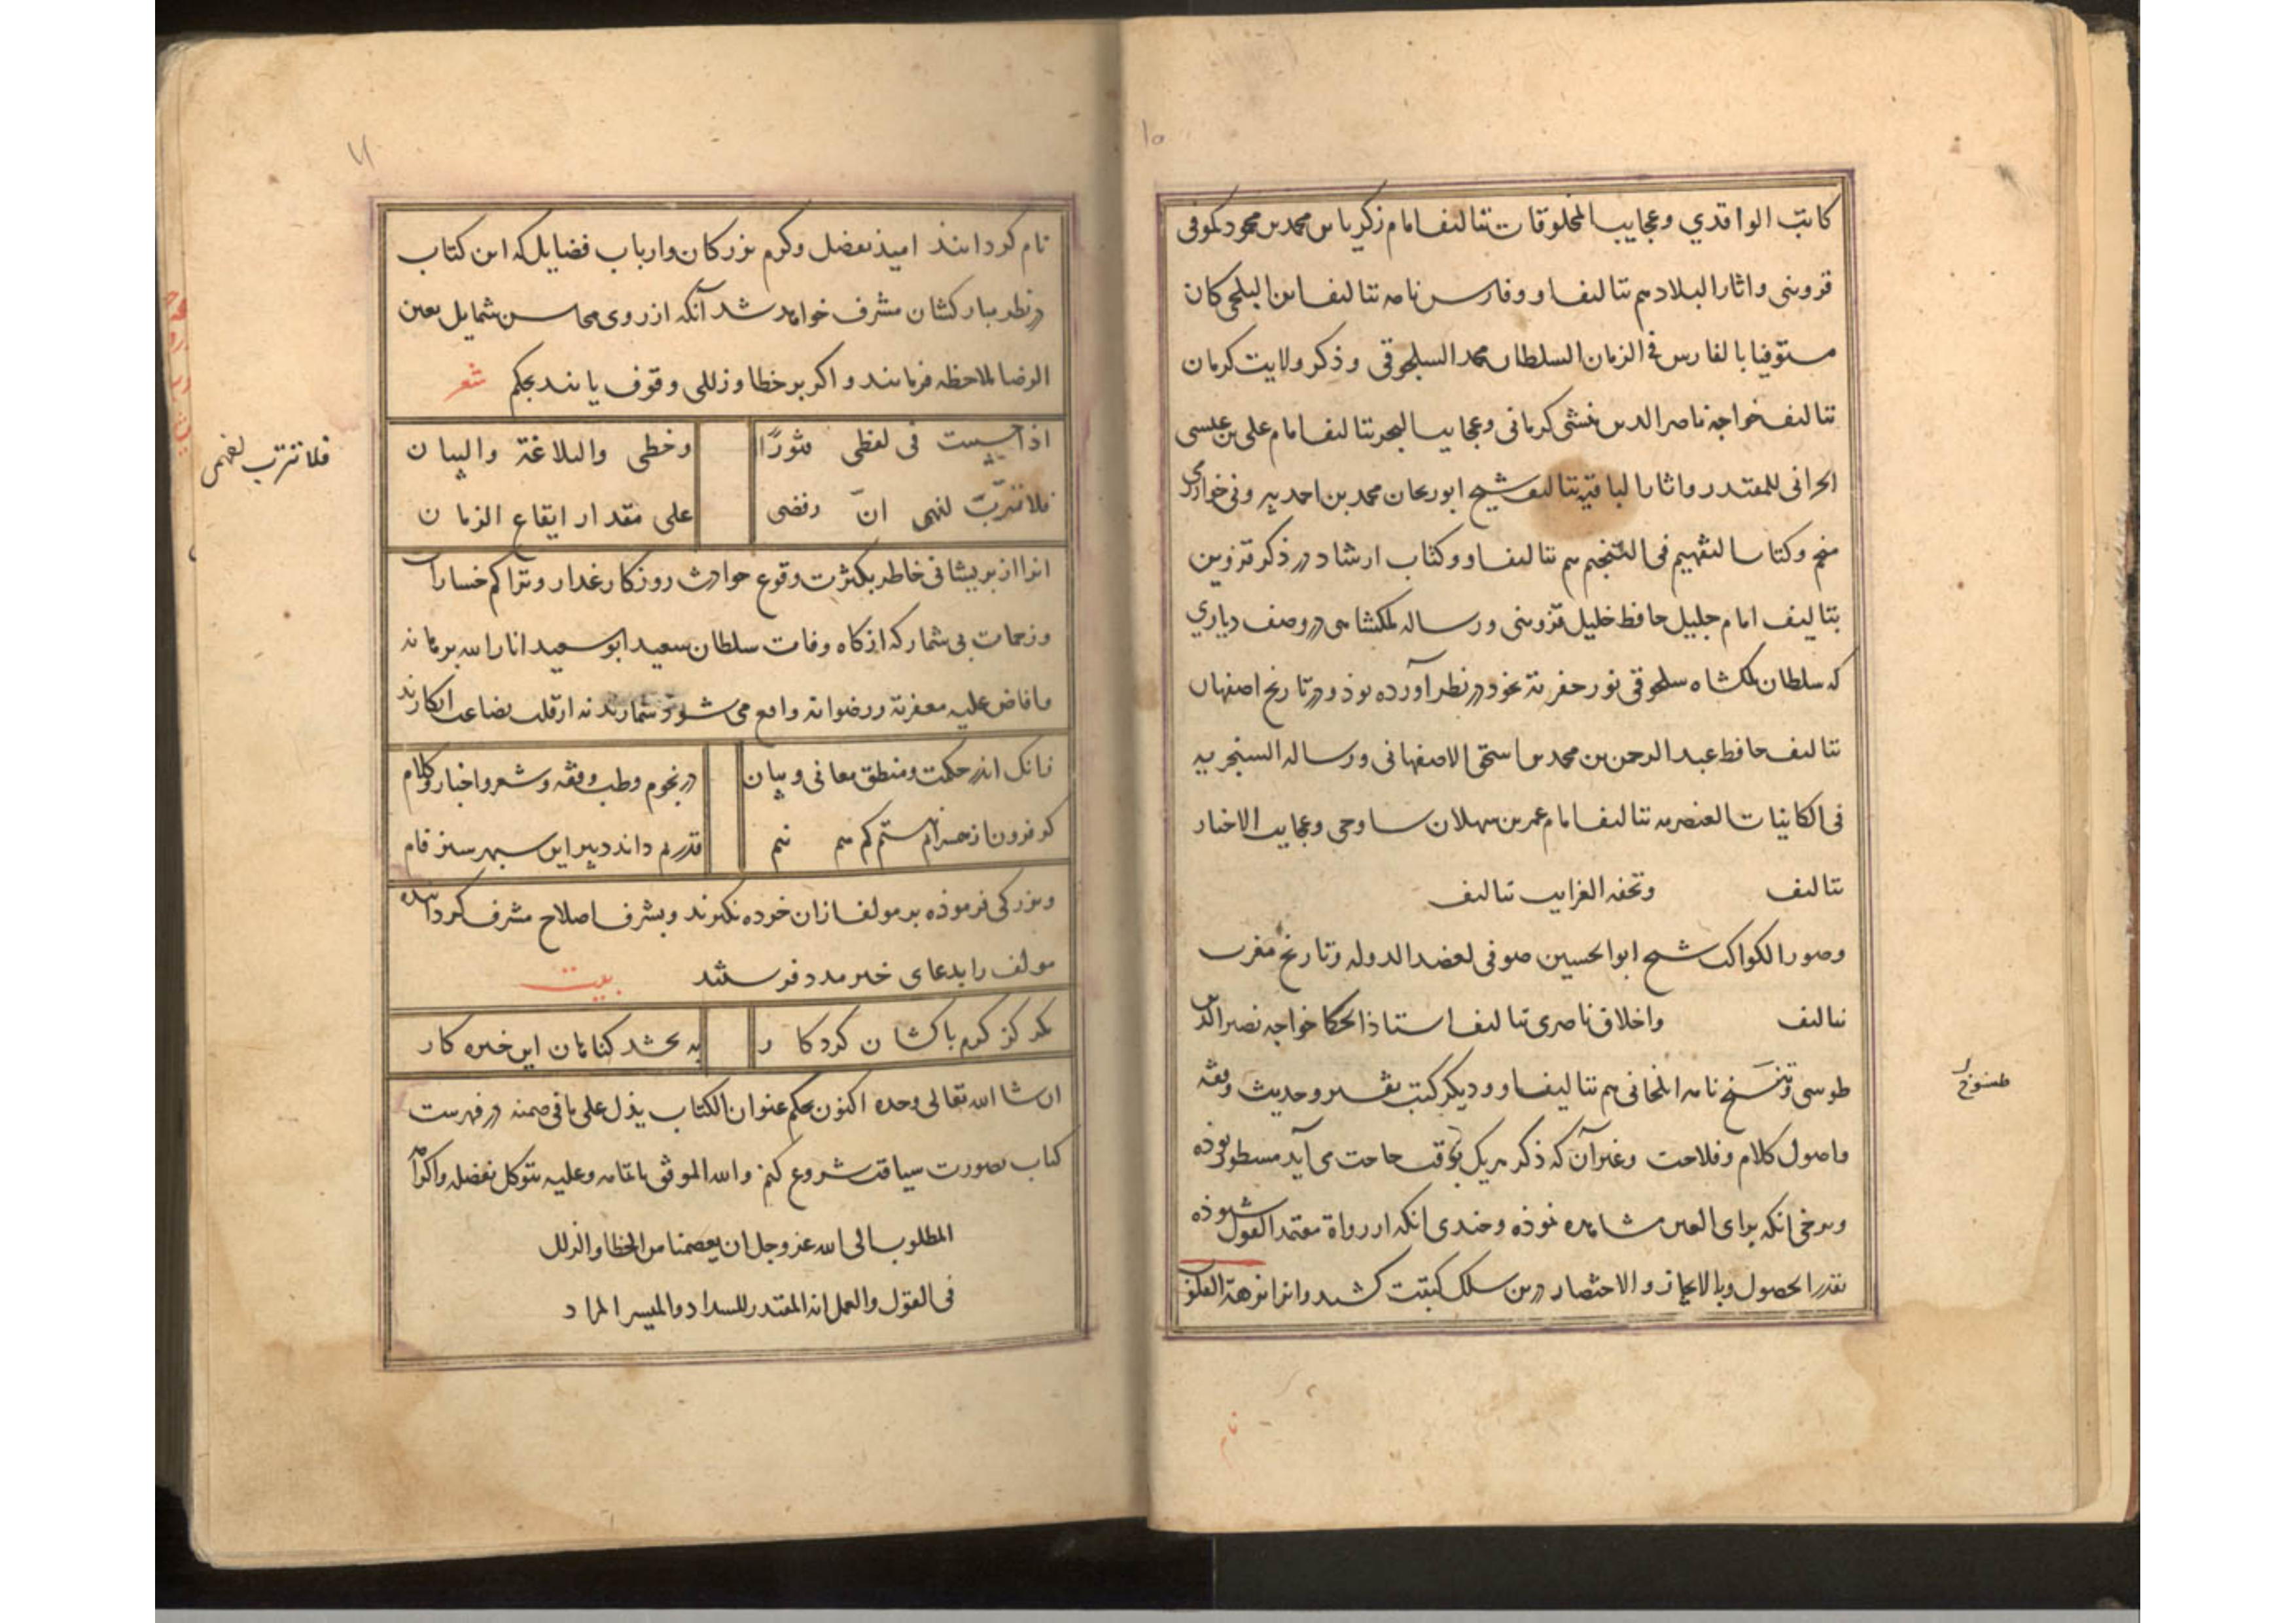 ۱۰
كاتب الواقدي وعجايب المخلوقات بتاليف امام زكريا بن محمد بن محمود كموفى
قزوينى واثار البلاد هم بتاليف او وفارس نامه بتاليف ابن البلخى كان
مستوفيا بالفارس فى الزمان السلطان محمد السلجوقى وذكر ولايت كرمان
بتاليف خواجه ناصر الدين منشى كرمانى وعجايب البحر بتاليف امام على بن عيسى
الحرانى للمقتدر واثار الباقيه بتاليف شيخ ابوريحان محمد بن احمد بيرونى خوارزمى
منجم وكتاب التفهيم فى التنجيم هم بتاليف او وكتاب ارشاد در ذكر قزوين
بتاليف امام جليل حافظ خليل قزوينى ورساله ملكشاهى در وصف دياري
كه سلطان ملكشاه سلجوقى نور حفرته بخود در نظر آورده بوذ ودر تاريخ اصفهان
بتاليف حافظ عبد الرحمن بن محمد بن اسحق الاصفهانى ورساله السنجريه
فى الكاينات العنصريه بتاليف امام عمر بن سهلان ساوجى وعجايب الاخبار
بتاليف وتحفه الغرايب بتاليف
وصور الكواكب شيخ ابو الحسين صوفى لعضد الدوله وتاريخ مغرب
بتاليف واخلاق ناصرى بتاليف استاذ الحكما خواجه نصير الدين
طوسى وتنسخ نامه ايلخانى هم بتاليف او وديكر كتب تفسير وحديث وفقه
واصول كلام وفلاحت وغير آن كه ذكر هريك بوقت حاجت مى آيد مسطور بوذه
وبرخى انكه براى العين مشاهده نموذه وچندى انكه از رواة معتمد القول شنوذه
بقدر الحصول وبالايجاز والاختصار درين سلك كتبت كشيد وانرا نزهة القلوب
طنسوخ
نام
۱۱
نام كردانيد اميذ بفضل وكرم بزركان وارباب فضايل كه اين كتاب
در نظر مباركشان مشرف خواهد شد آنكه از روى محاسن شمايل بعين
الرضا ملاحظه فرمايند واكر بر خطا وزللى وقوف يابند بحكم شعر
اذا احسست فى لفظى فتورًا وخطى والبلاغة والبيان
فلا ترتب لفهمى انّ رقصى على مقدار ايقاع الزمان
فلا ترتب لفهمى
انرا از پريشانى خاطر بكثرت وقوع حوادث روزكار غدار وتراكم خسارات
وزحمات بى شمار كه از كاه وفات سلطان سعيد ابو سعيد انار الله برهانه
وافاض عليه مغفرته ورضوانه واقع مى شود شمارند نه از قلت بضاعت انكارند
زانك اندر حكمت ومنطق معانى وبيان در نجوم وطب وفقه وشعر واخبار وكلام
كر فزون از حد ندانستم كم هم نيم قدر هم داند دبير اين سپهر سبز فام
وبزركى فرموذه بر مولف ازان خرده نكيرند وبشرف اصلاح مشرف كردانيده
مولف را بدعاى خير مدد فرستند بيت
مكر كز كرم پاكشان كردكار به بخشد كناهان اين خيره كار
ان شا الله تعالى وحده اكنون بحكم عنوان الكتاب يدل على ما فى ضمنه در فهرست
كتاب بصورت سياقت شروع كنم والله الموفق باتمامه وعليه نتوكل بفضله واكرامه
المطلوب الى الله عز وجل ان يعصمنا من الخطا والزلل
فى القول والعمل انه المقتدر للسداد والميسر المراد